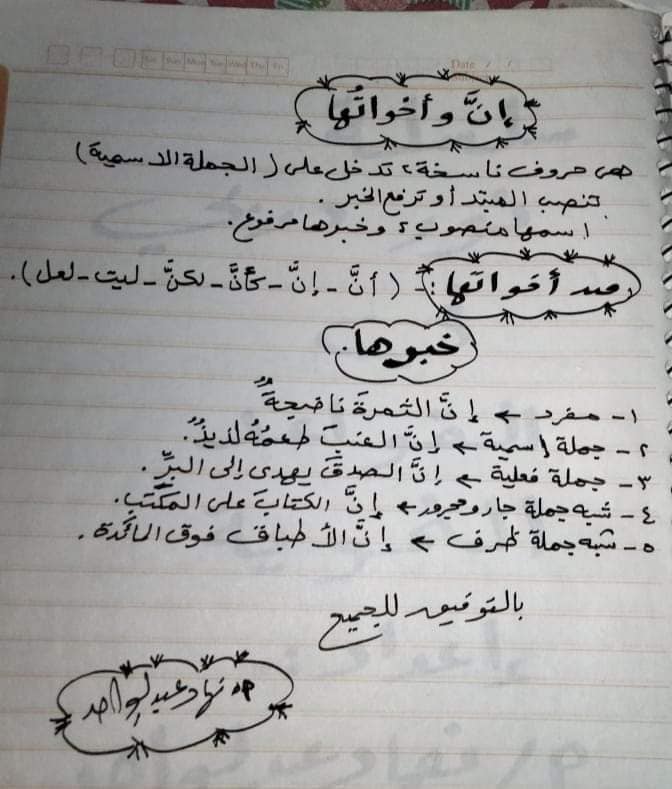 Date / /
إنَّ وأخواتُها
هى حروف ناسخة، تدخل على (الجملة الاسمية)
تنصب المبتدأ وترفع الخبر.
اسمها منصوب، وخبرها مرفوع.
من أخواتها: - (أنَّ - إنَّ - كأنَّ - لكنَّ - ليت - لعل).
خبرها.
١- مفرد ← إنَّ الثمرةَ ناضجةٌ
٢- جملة اسمية ← إنَّ العنبَ طعمُهُ لذيذٌ.
٣- جملة فعلية ← إنَّ الصدقَ يهدى إلى البرِّ.
٤- شبه جملة جار ومجرور ← إنَّ الكتابَ على المكتبِ.
٥- شبه جملة ظرف ← إنَّ الأطباقَ فوق المائدة.
بالتوفيق للجميع
نهاد عبدالواحد